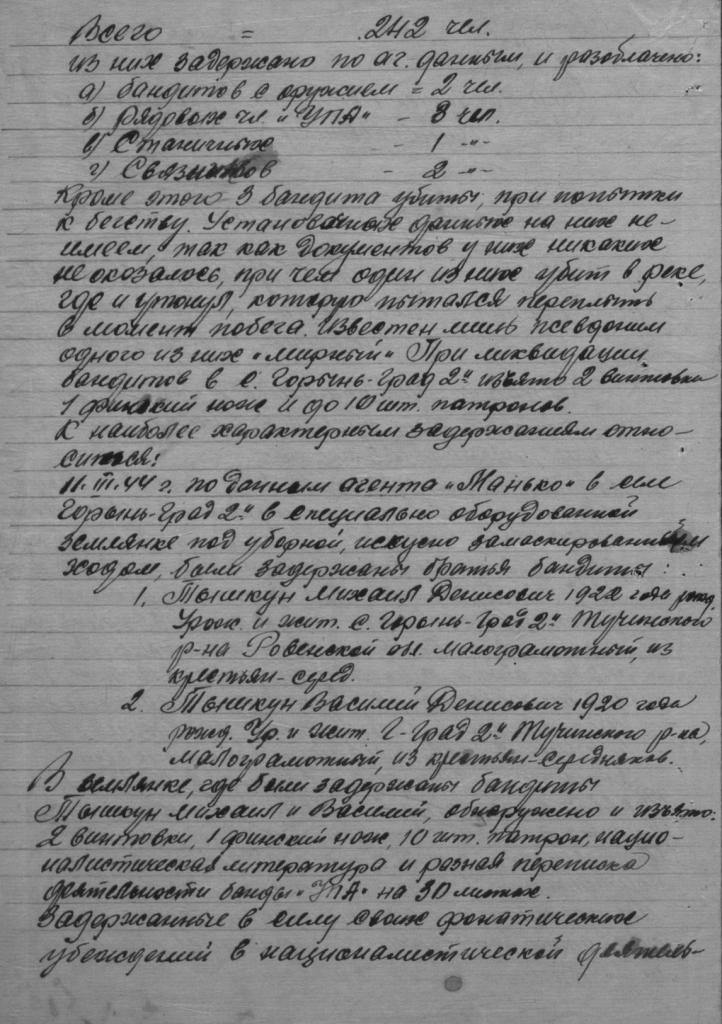 Всего = 242 чел.
из них задержано по аг. данным, и разоблачено:
а) бандитов с оружием = 2 чел.
б) Рядовых чл. "УПА" - 3 чел.
в) Станичных - 1 -"-
г) Связников - 2 -"-
Кроме этого 3 бандита убиты, при попытки
к бегству. Установочных данных на них не-
имеем, так как документов у них никаких
не оказалось, при чем один из них убит в реке,
где и утонул, которую пытался переплыть
в момент побега. Известен лишь псевдоним
одного из них "мирный" При ликвидации
бандитов в с. Горынь-Град 2й изъято 2 винтовки
1 финский нож и до 10 шт. патронов.
К наиболее характерным задержаниям отно-
ситься:
11.III.44 г. по данным агента "Манько" в селе
Горынь-Град 2й в специально оборудованной
землянке под уборной, искусно замаскированным
ходом, были задержаны братья бандиты:
1. Тышкун Михаил Денисович 1922 года рожд.
Урож. и жит. с. Горынь-Град 2й Тучинского
р-на Ровенской обл. малограмотный, из
крестьян-серед.
2. Тышкун Василий Денисович 1920 года
рожд. Ур. и жит. Г-Град 2й Тучинского р-на,
малограмотный, из крестьян-середняков.
В землянке, где были задержаны бандиты
Тышкун Михаил и Василий, обнаружено и изъято:
2 винтовки, 1 финский нож, 10 шт. патрон, нацио-
налистическая литература и разная переписка
деятельности банды "УПА" на 30 листах.
Задержанные в силу своих фонатических
убеждений в националистической деятель-